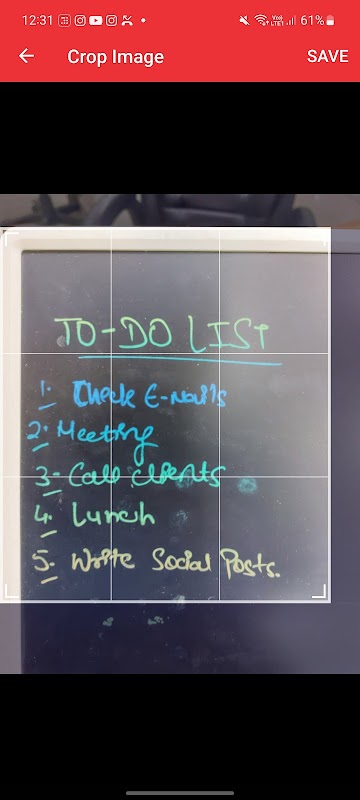 12:31 61%
Crop Image SAVE
TO-DO LIST
1. Check E-mails
2. Meeting
3- Call clients
4. Lunch
5. Write Social Posts.